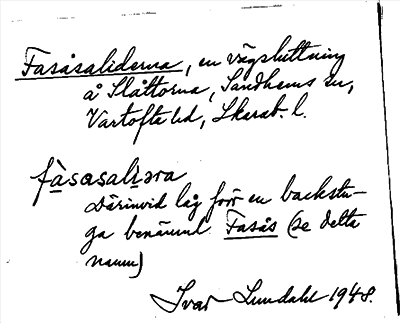 Fasåsaliderna, en vägsluttning
å Slättorna, Sandhems sn,
Vartofta hd, Skarab. l.
fàsasali̱ɔra
Därinvid låg förr en backstu-
ga benämnd Fasås (se detta
namn)
Ivar Lundahl 1948.